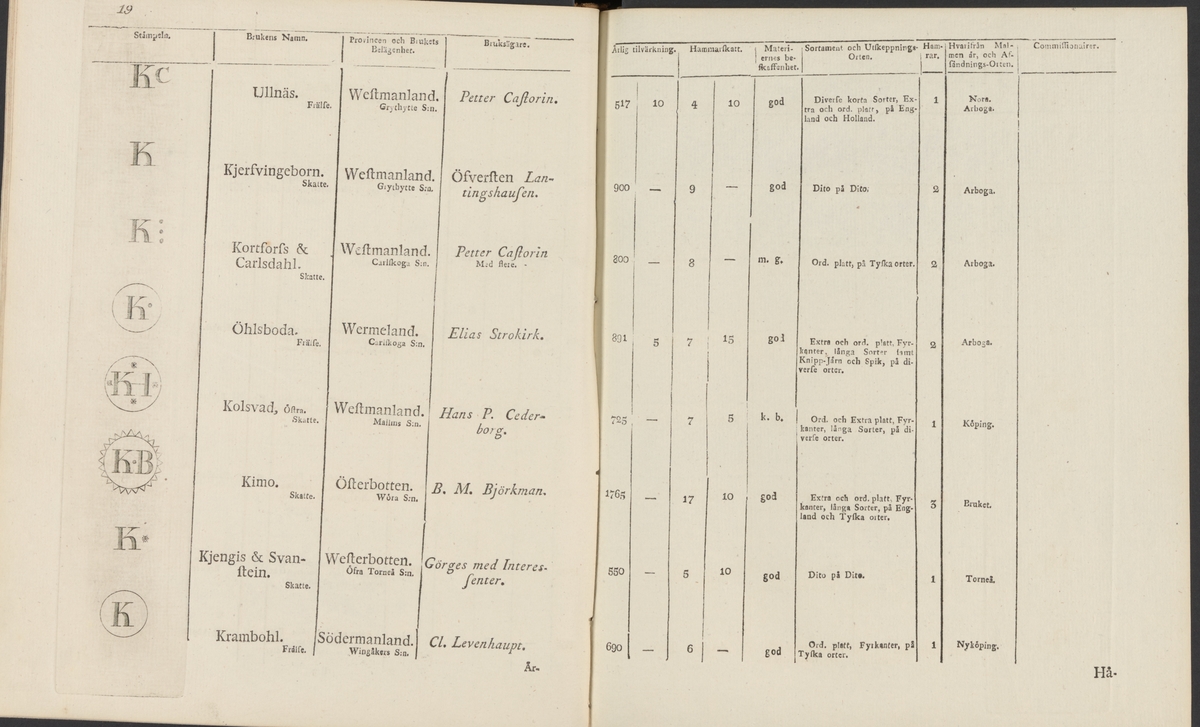 19
Stämpeln. Brukens Namn. Provincen och Brukets Belägenhet. Bruksägare.
KC
Ullnäs. Westmanland. Petter Castorin.
Frälse. Grythytte S:n.
K
Kjersvingeborn. Westmanland. Öfversten Lan-
Skatte. Grythytte S:n. tingshausen.
K
Kortförss & Westmanland. Petter Castorin
Carlsdahl. Carlskoga S:n. Med flere.
Skatte.
K
Öhlsboda. Wermeland. Elias Strokirk.
Frälse. Carlskoga S:n.
KH
Kolsvad, Östra. Westmanland. Hans P. Ceder-
Skatte. Malms S:n. borg.
K·B
Kimo. Österbotten. B. M. Björkman.
Skatte. Wörå S:n.
K*
Kjengis & Svan- Westerbotten. Görges med Interes-
stein. Öfra Torneå S:n. senter.
Skatte.
K
Krambohl. Södermanland. Cl. Levenhaupt.
Frälse. Wingåkers S:n.
Är-
Årlig tilvärkning. Hammarskatt. Materi- Sortament och Utskeppnings- Ham- Hvarifrån Mal- Commissionairer.
ernes be- Orten. rar. men är, och Af-
skaffenhet. sändnings-Orten.
517 10 4 10 god Diverse korta Sorter, Ex- 1 Nora.
tra och ord. platt, på Eng- Arboga.
land och Holland.
900 — 9 — god Dito på Dito. 2 Arboga.
800 — 8 — m. g. Ord. platt, på Tyska orter. 2 Arboga.
891 5 7 15 god Extra och ord. platt, Fyr- 2 Arboga.
kanter, långa Sorter samt
Knipp-Järn och Spik, på di-
verse orter.
725 — 7 5 k. b. Ord. och Extra platt, Fyr- 1 Köping.
kanter, långa Sorter, på di-
verse orter.
1765 — 17 10 god Extra och ord. platt, Fyr- 3 Bruket.
kanter, långa Sorter, på Eng-
land och Tyska orter.
550 — 5 10 god Dito på Dito. 1 Torneå.
690 — 6 — god Ord. platt, Fyrkanter, på 1 Nyköping.
Tyska orter.
Hå-